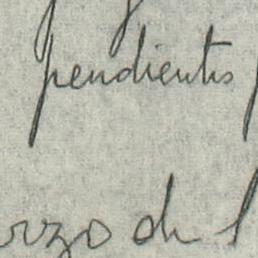 pendientes
rzo de